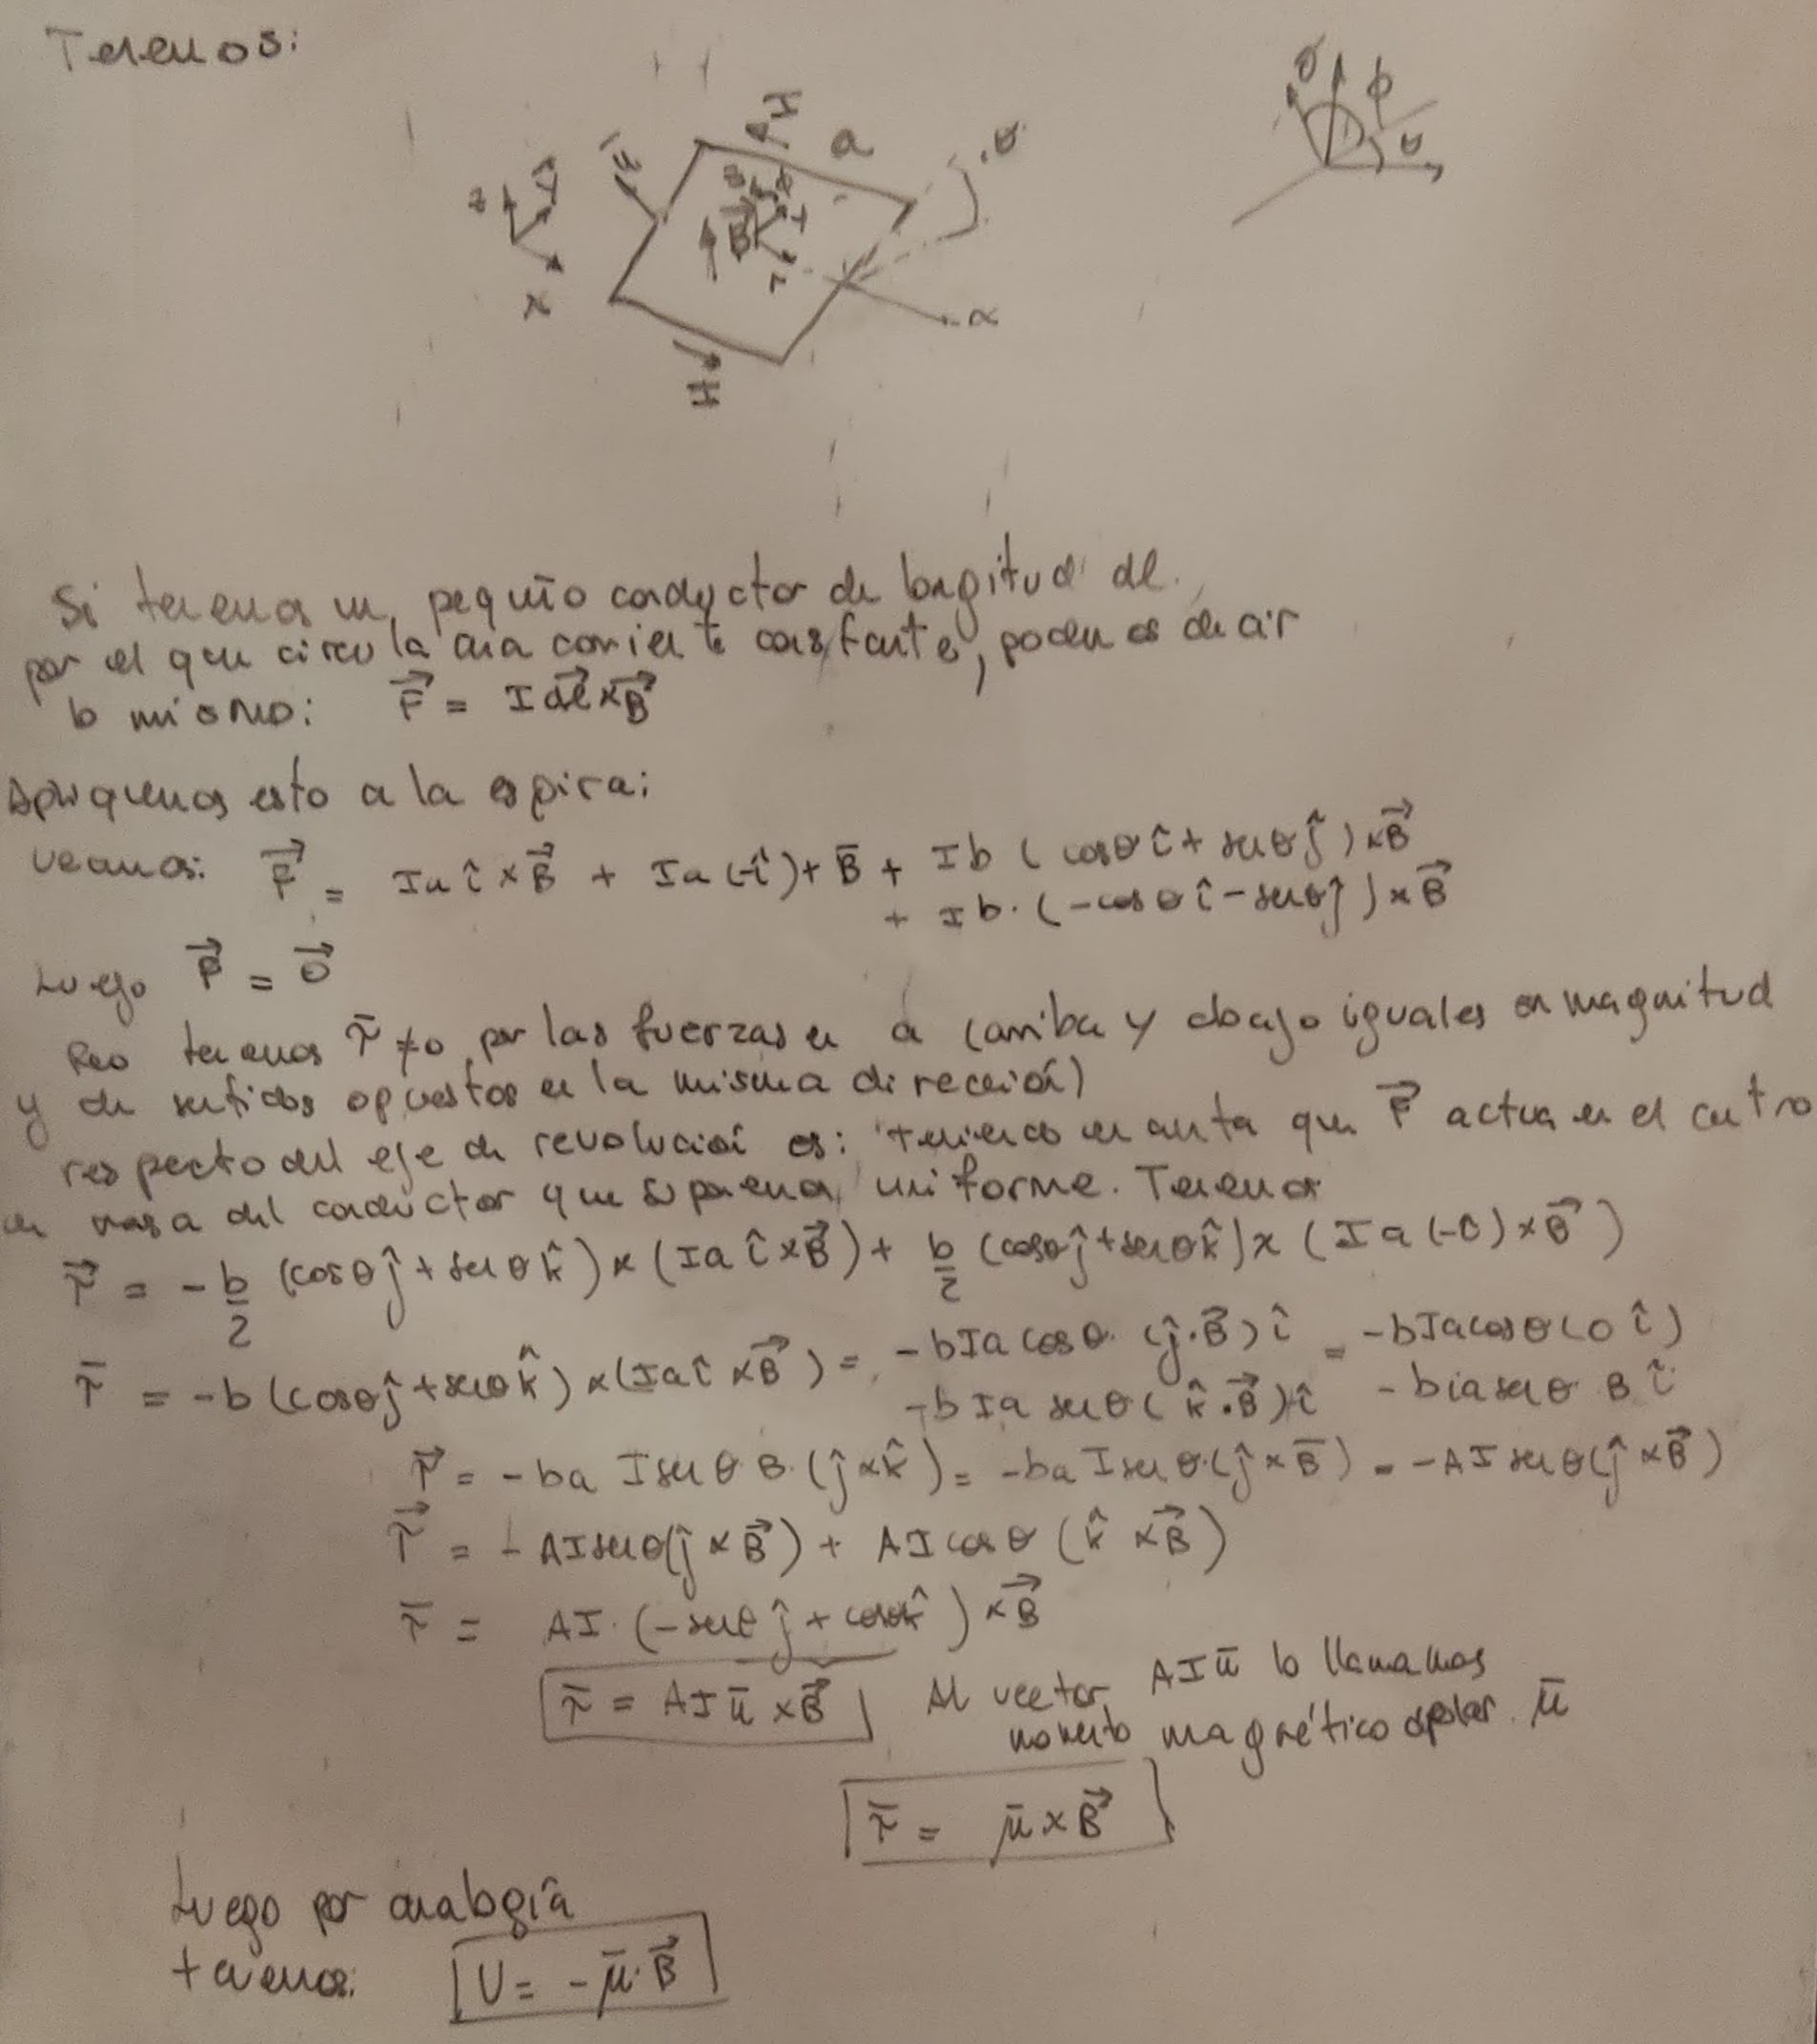 Tenemos:
I a θ
z y ū B̄ x
I α
θ φ
Si tenemos un pequño conductor de longitud dl
por el que circula una corriente constante, podemos decir
lo mismo: F⃗ = I dl⃗ × B⃗
Apliquemos esto a la espira:
Veamos: F⃗ = Ia î × B⃗ + Ia (-î) + B̄ + Ib (cosθ î + senθ ĵ) × B⃗
+ Ib · (-cosθ î - senθ ĵ) × B⃗
Luego F⃗ = 0⃗
Pero tenemos τ̄ ≠ 0 por las fuerzas en a (arriba y abajo iguales en magnitud
y de sentidos opuestos en la misma dirección)
respecto del eje de revolución es: teniendo en cuenta que F⃗ actua en el centro
de masa del conductor que suponemos uniforme. Tenemos
τ⃗ = - b/2 (cosθ ĵ + senθ k̂) × (Ia î × B⃗) + b/2 (cosθ ĵ + senθ k̂) × (Ia (-î) × B⃗)
τ̄ = -b (cosθ ĵ + senθ k̂) × (Ia î × B⃗) = -bIa cosθ (ĵ·B⃗) î = -bIa cosθ (0 î)
-bIa senθ (k̂·B⃗) î - bIa senθ B î
τ⃗ = -ba I senθ B · (ĵ × k̂) = -ba I senθ · (ĵ × B̄) = -AI senθ (ĵ × B⃗)
τ⃗ = -AI senθ (ĵ × B⃗) + AI cosθ (k̂ × B⃗)
τ̄ = AI · (-senθ ĵ + cosθ k̂) × B⃗
τ̄ = AI ū × B⃗ Al vector AI ū lo llamamos
momento magnético dipolar μ̄
τ̄ = μ̄ × B⃗
Luego por analogía
tenemos: U = - μ̄ · B⃗